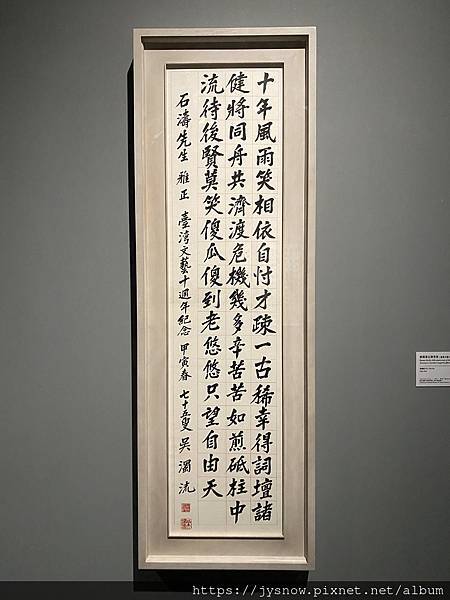 十年風雨笑相依自忖才疎一古稀幸得詞壇諸
健將同舟共濟渡危機幾多辛苦苦如煎砥柱中
流待後賢莫笑傻瓜傻到老悠悠只望自由天
石濤先生 雅正 臺湾文藝十週年紀念 甲寅春 七十五叟 吳濁流
https://jysnow.pixnet.net/album